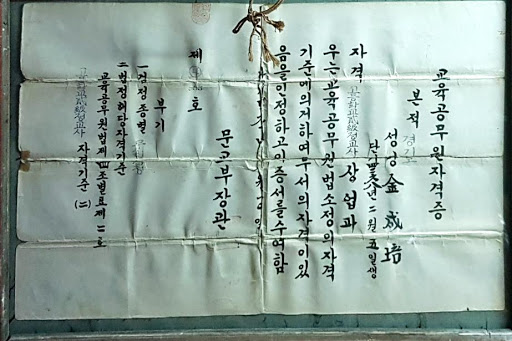 교육공무원자격증
본적 경기도
성명 金成培
二월五일생
자격 정교사 상업과
우는교육공무원법소정의자격
기준에의거하여두서의자격이있
음을인정하고이증서를수여함
문교부장관
제 호
부기
一검정종별
二법정해당자격기준
교육공무원법제四조별표제一호
정교사 자격기준(二)